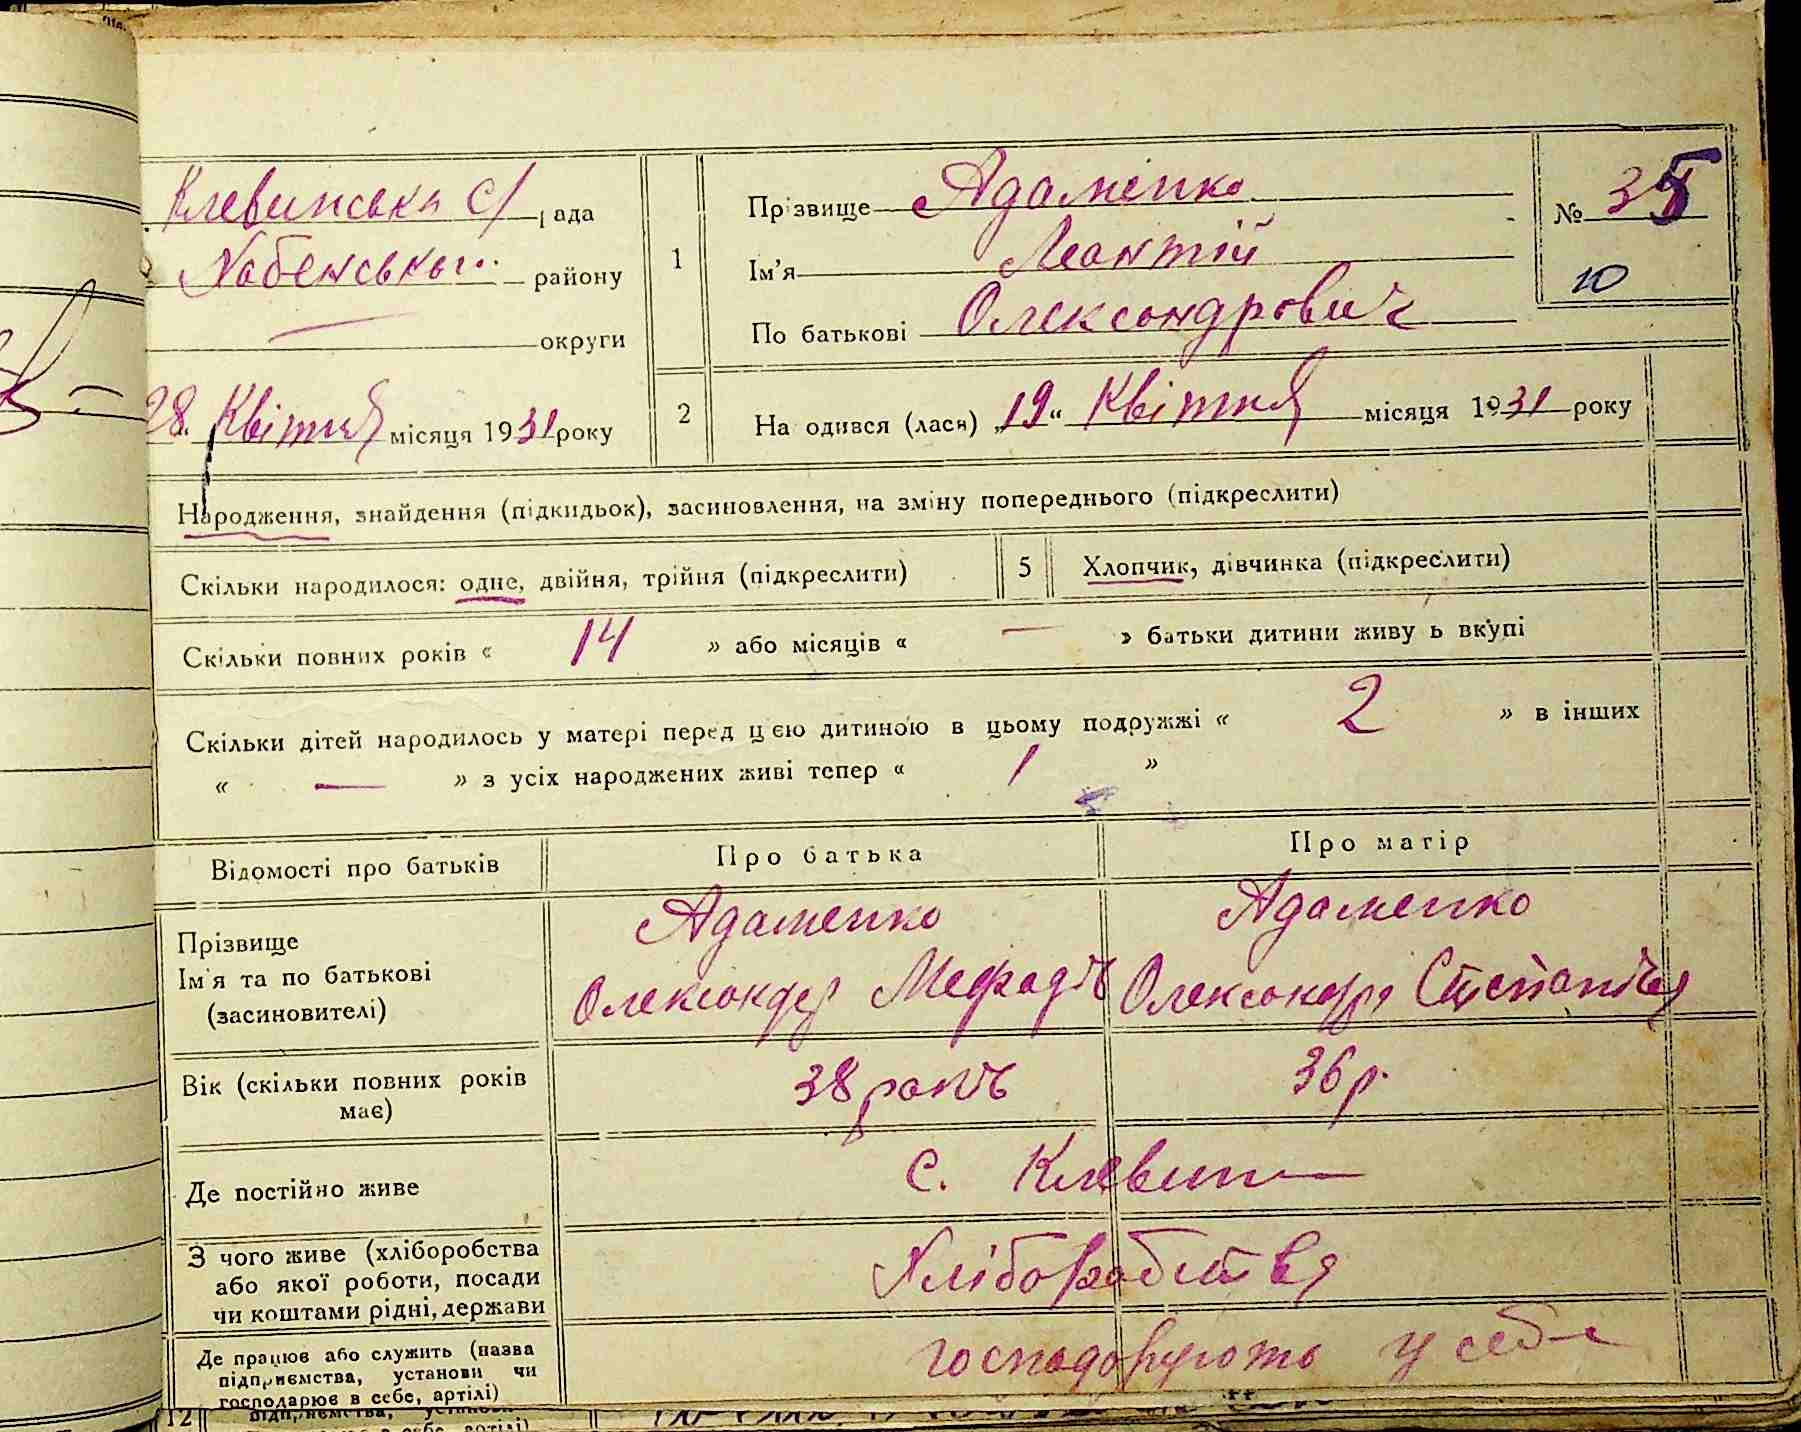 Клевинська с/рада
Хабенського району
округи
28 Квітня місяця 1931 року
1
Прізвище Адаменко
Ім'я Леонтій
По батькові Олександрович
№ 35
10
2
На одився (лася) „19“ Квітня місяця 1931 року
Народження, знайдення (підкидьок), засиновлення, на зміну попереднього (підкреслити)
Скільки народилося: одне, двійня, трійня (підкреслити)
5
Хлопчик, дівчинка (підкреслити)
Скільки повних років « 14 » або місяців « — » батьки дитини живу ь вкупі
Скільки дітей народилось у матері перед цією дитиною в цьому подружжі « 2 » в інших
« — » з усіх народжених живі тепер « 1 »
Відомості про батьків
Про батька
Про матір
Прізвище
Ім'я та по батькові
(засиновителі)
Адаменко
Олександр Мефодів
Адаменко
Олександра Степанівна
Вік (скільки повних років
має)
38 років
36 р.
Де постійно живе
с. Клевин
З чого живе (хліборобства
або якої роботи, посади
чи коштами рідні, держави
Хліборобства
Де працює або служить (назва
підприємства, установи чи
господарює в себе, артілі)
господарують у себе
12